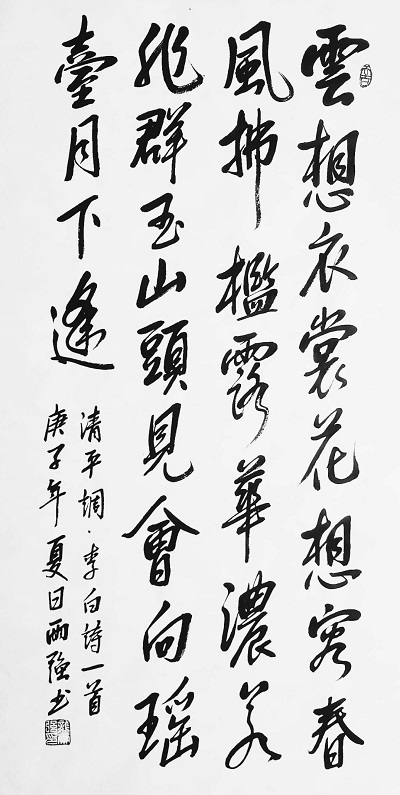 雲想衣裳花想容春
風拂檻露華濃若
非群玉山頭見會向瑤
臺月下逢
清平調·李白詩一首
庚子年夏日雨强书